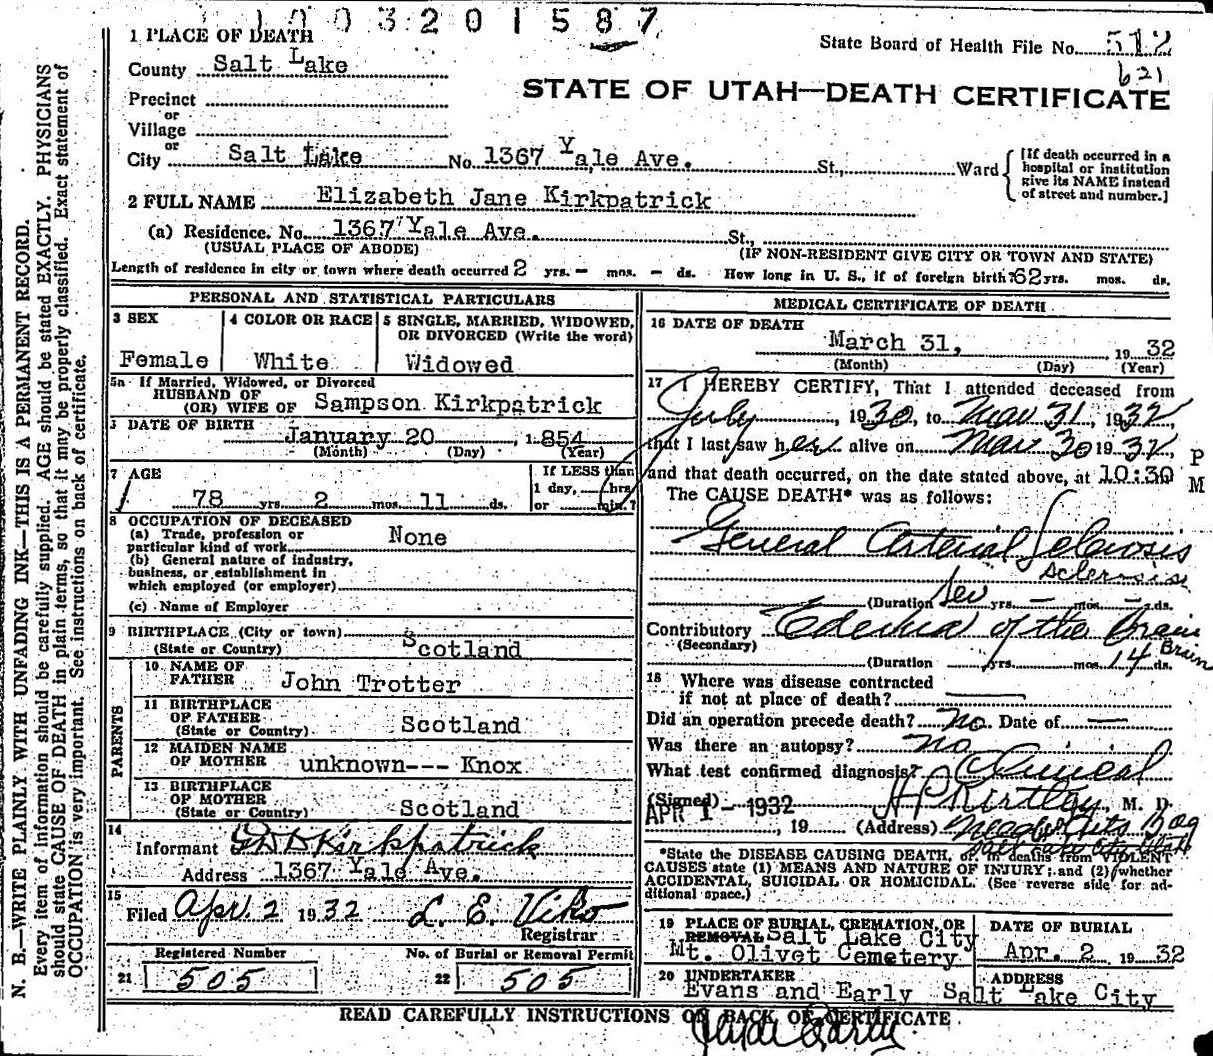 1003201587
1 PLACE OF DEATH
State Board of Health File No. 512
621
County Salt Lake
STATE OF UTAH—DEATH CERTIFICATE
Precinct
or
Village
or
City Salt Lake No. 1367 Yale Ave. St., Ward
[If death occurred in a
hospital or institution
give its NAME instead
of street and number.]
2 FULL NAME Elizabeth Jane Kirkpatrick
(a) Residence. No. 1367 Yale Ave. St.,
(USUAL PLACE OF ABODE) (IF NON-RESIDENT GIVE CITY OR TOWN AND STATE)
Length of residence in city or town where death occurred 2 yrs. — mos. — ds. How long in U. S., if of foreign birth? 62 yrs. mos. ds.
N. B.—WRITE PLAINLY WITH UNFADING INK—THIS IS A PERMANENT RECORD.
Every item of information should be carefully supplied. AGE should be stated EXACTLY. PHYSICIANS
should state CAUSE OF DEATH in plain terms, so that it may be properly classified. Exact statement of
OCCUPATION is very important. See instructions on back of certificate.
PERSONAL AND STATISTICAL PARTICULARS
3 SEX
4 COLOR OR RACE
5 SINGLE, MARRIED, WIDOWED,
OR DIVORCED (Write the word)
Female White Widowed
5a If Married, Widowed, or Divorced
HUSBAND OF
(OR) WIFE OF Sampson Kirkpatrick
DATE OF BIRTH
January 20, 1854
(Month) (Day) (Year)
7 AGE
If LESS than
1 day, hrs.
or min.?
78 yrs. 2 mos. 11 ds.
8 OCCUPATION OF DECEASED
(a) Trade, profession or
particular kind of work None
(b) General nature of industry,
business, or establishment in
which employed (or employer)
(c) Name of Employer
9 BIRTHPLACE (City or town)
(State or Country) Scotland
PARENTS
10 NAME OF
FATHER John Trotter
11 BIRTHPLACE
OF FATHER
(State or Country) Scotland
12 MAIDEN NAME
OF MOTHER unknown--- Knox
13 BIRTHPLACE
OF MOTHER
(State or Country) Scotland
14
Informant Kirkpatrick
Address 1367 Yale Ave.
15
Filed Apr. 2 1932 L. E. Viko
Registrar
Registered Number
21 505
No. of Burial or Removal Permit
22 505
MEDICAL CERTIFICATE OF DEATH
16 DATE OF DEATH
March 31, 1932
(Month) (Day) (Year)
17 I HEREBY CERTIFY, That I attended deceased from
July 1930, to Mar 31, 1932
that I last saw her alive on Mar 30 1932,
and that death occurred, on the date stated above, at 10:30 P
M
The CAUSE DEATH* was as follows:
General Arterial Sclerosis
sclerosis
(Duration Sev yrs. — mos. — ds.
Contributory Edema of the Brain
(Secondary) Brain
(Duration yrs. mos. 14 ds.
18 Where was disease contracted
if not at place of death?
Did an operation precede death? No. Date of —
Was there an autopsy? no
What test confirmed diagnosis? Clinical
(Signed) HP Kirtley, M. D.
APR 1 - 1932
, 19 (Address)
*State the DISEASE CAUSING DEATH, or in deaths from VIOLENT
CAUSES state (1) MEANS AND NATURE OF INJURY; and (2) whether
ACCIDENTAL, SUICIDAL OR HOMICIDAL. (See reverse side for ad-
ditional space.)
19 PLACE OF BURIAL, CREMATION, OR
REMOVAL Salt Lake City
Mt. Olivet Cemetery
DATE OF BURIAL
Apr. 2 1932
20 UNDERTAKER
Evans and Early
ADDRESS
Salt Lake City
READ CAREFULLY INSTRUCTIONS ON BACK OF CERTIFICATE